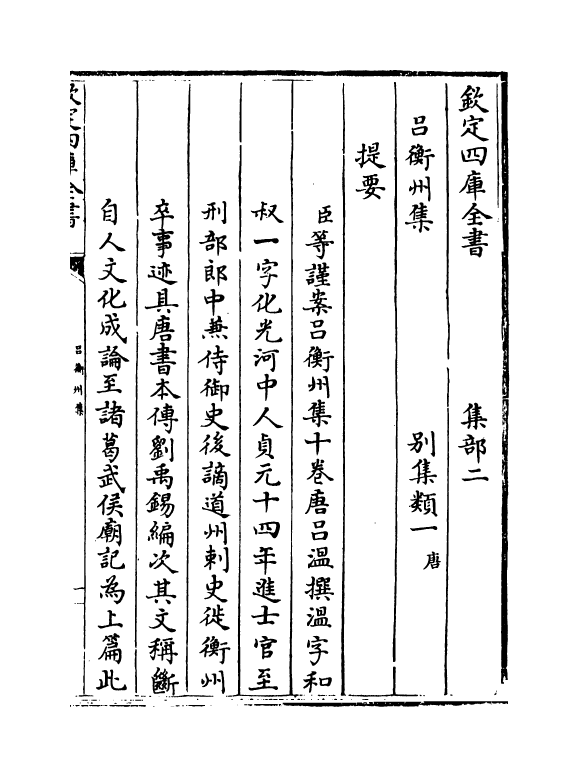 欽定四庫全書　集部二
吕衡州集　别集類一唐
提要
臣等謹案吕衡州集十卷唐吕溫撰溫字和
叔一字化光河中人貞元十四年進士官至
刑部郎中兼侍御史後謫道州刺史徙衡州
卒事迹具唐書本傳劉禹錫編次其文稱斷
自人文化成論至諸葛武侯廟記為上篇此
欽定四庫全書
吕衡州集
一